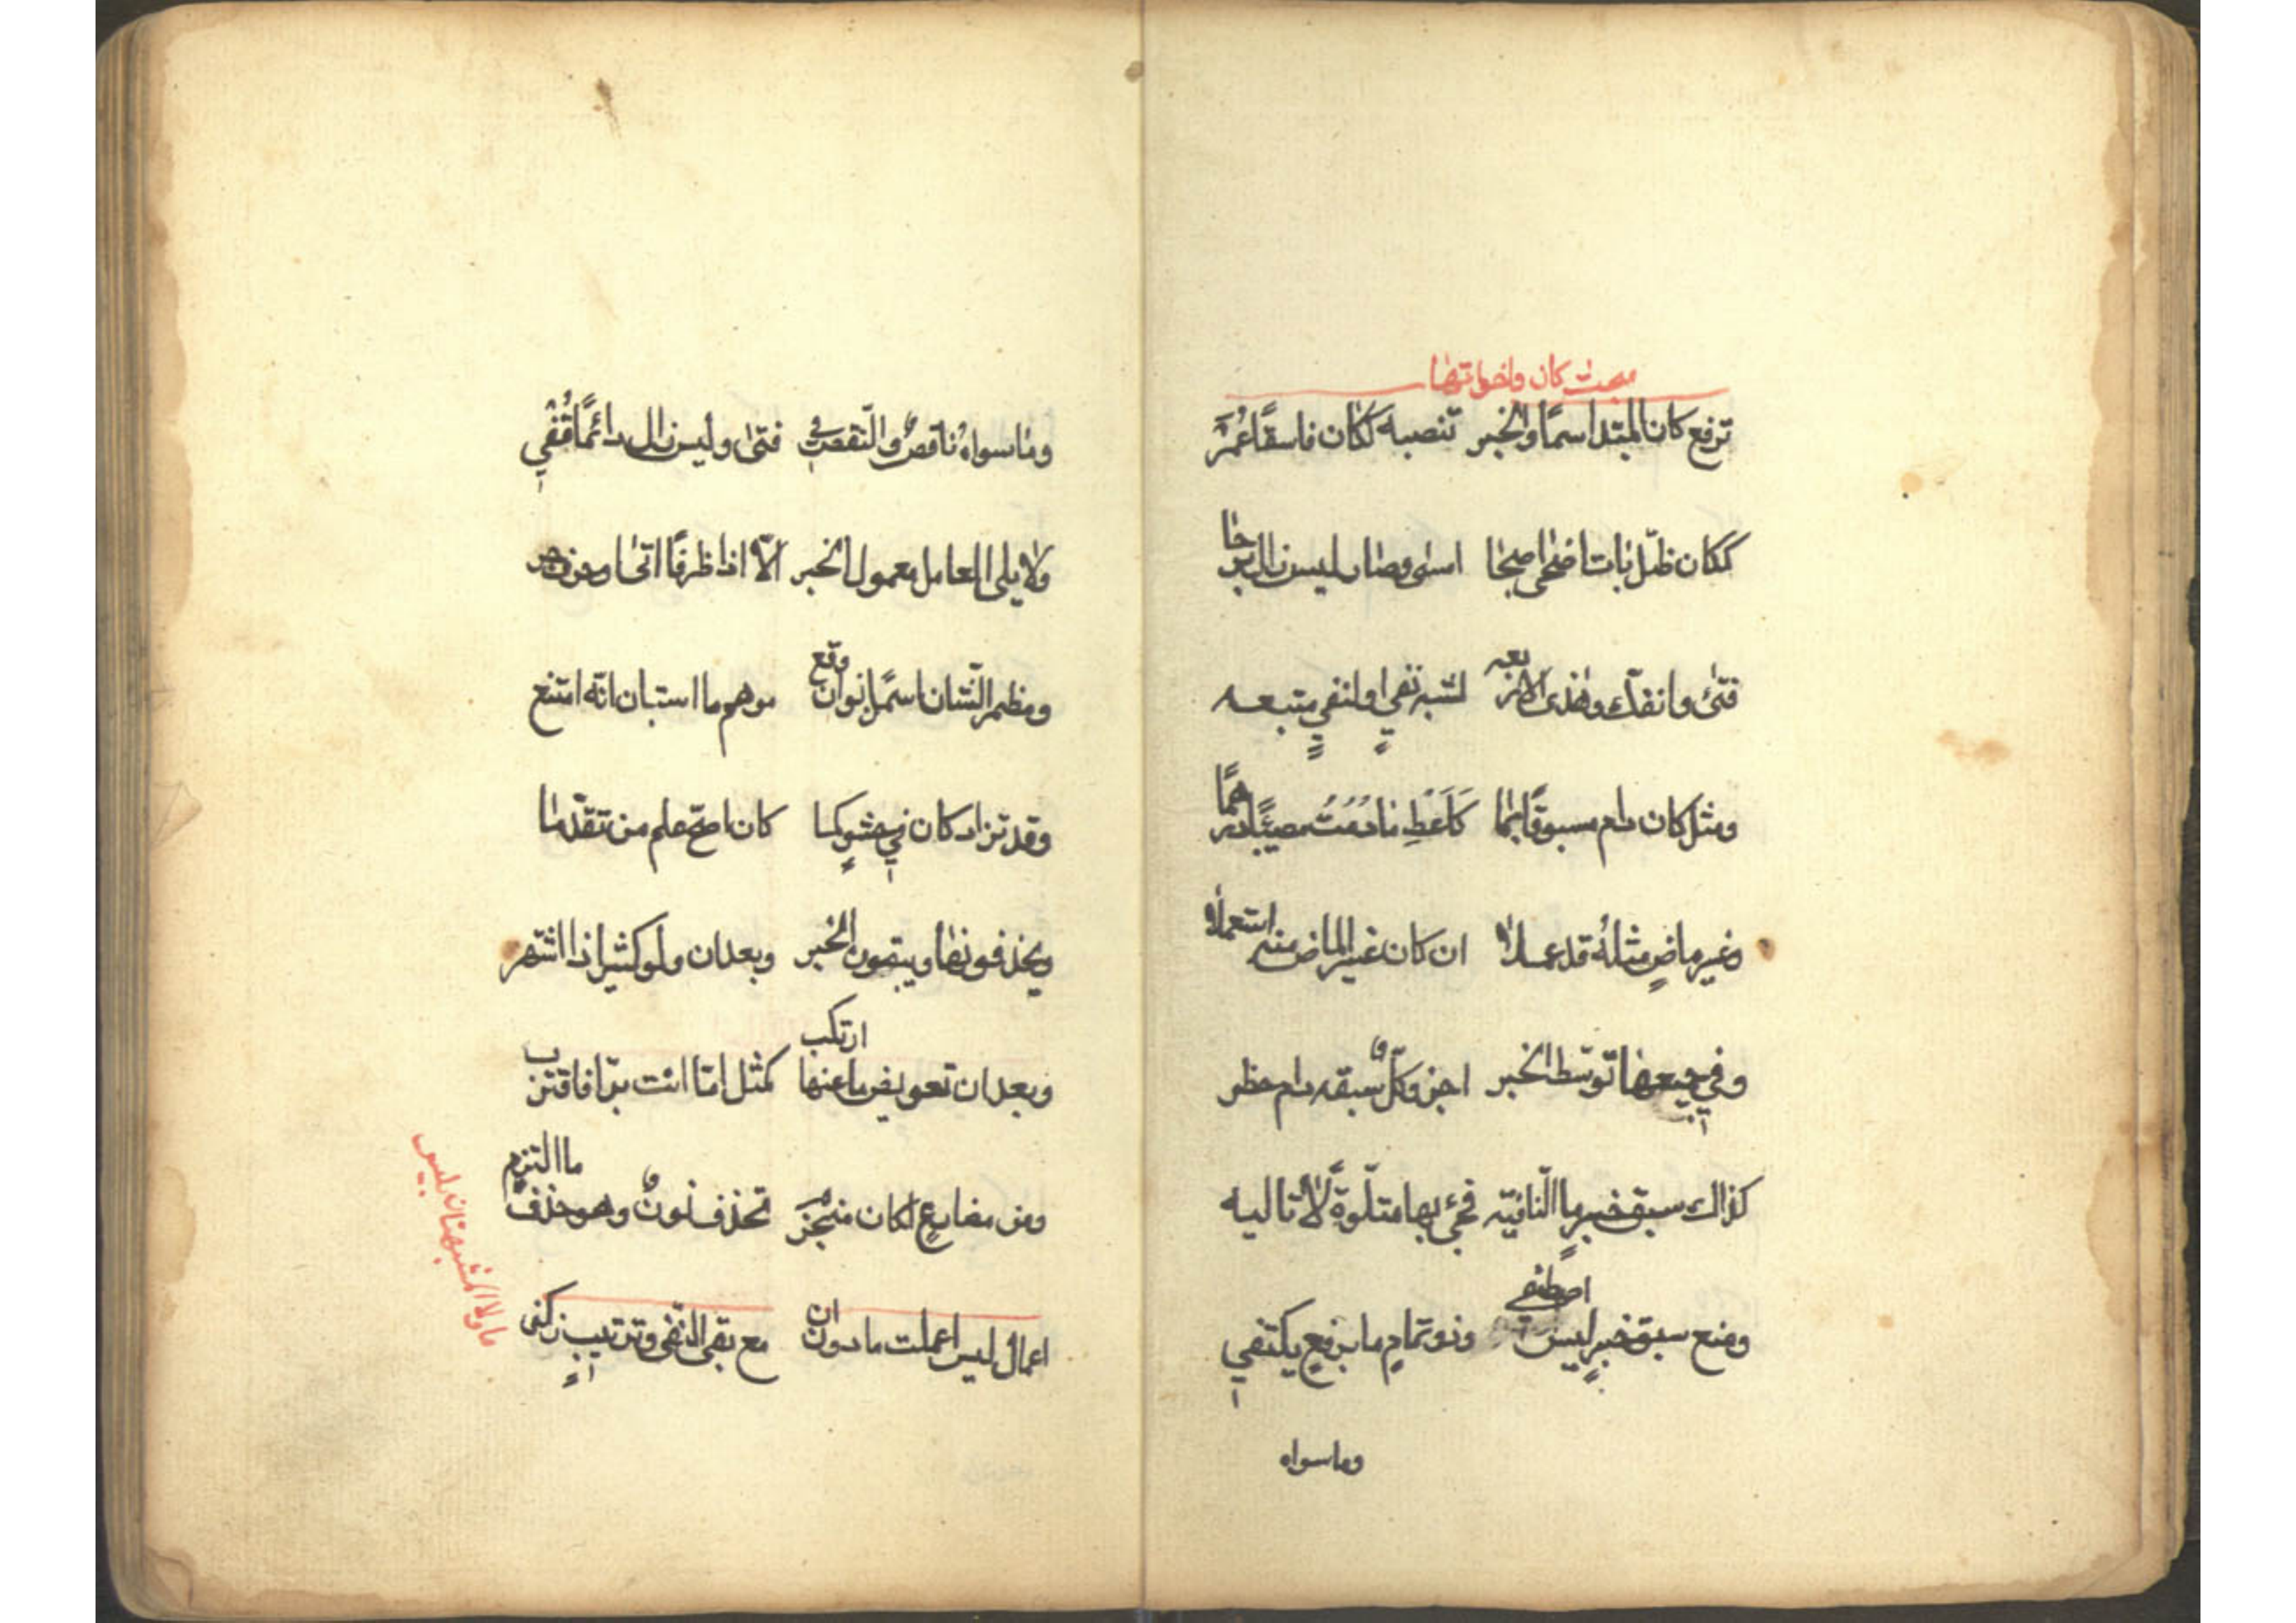 مبحث كان واخواتها
ترفع كان المبتدا اسمًا والخبر تنصبه ككان فاسقًا عُمَر
ككان ظلّ بات اضحى اصبحا امسى وصار ليس زال برحا
فتئ وانفكّ وهذى الاربعه لشبه نفيٍ او لنفيٍ متبعه
ومثل كان دام مسبوقًا بما كَاَعْطِ مادُمْتَ مصيبًا درهمًا
وغير ماضٍ مثلهُ قد عملا ان كان غير الماض منه استعملا
وفي جميعها توسّط الخبر اجز وكلٌّ سبقه دام حظر
كذاك سبق خبرٍ ما النّافيّه فجئ بها متلوّةً لا تاليه
ومنع سبق خبرٍ ليس اصطفى وذو تمامٍ ما برفعٍ يكتفي
وماسواه
وماسواه ناقصٌ والنّقص في فتئ وليس زال دائمًا قُفْي
ولا يلى العامل معمول الخبر الّا اذا ظرفًا اتى او حرف جر
ومظمر الشّان اسمًا انو ان وقع موهم ما استبان انّه امتنع
وقد تزاد كان في حشوٍ كما كان اصحّ علم من تقدّما
ويحذفونها ويبقون الخبر وبعد ان ولو كثيرا ذا اشتهر
وبعد ان تعويض ما عنها ارتكب كمثل امّا انت برّا فاقترب
ومن مضارعٍ لكان منجزمْ تحذف نونٌ وهو حذفٌ ما التزم
اعمال ليس اعملت ما دون ان مع بقى النّفى وترتيبٍ زكن
ما ولا المشبهتان بليس